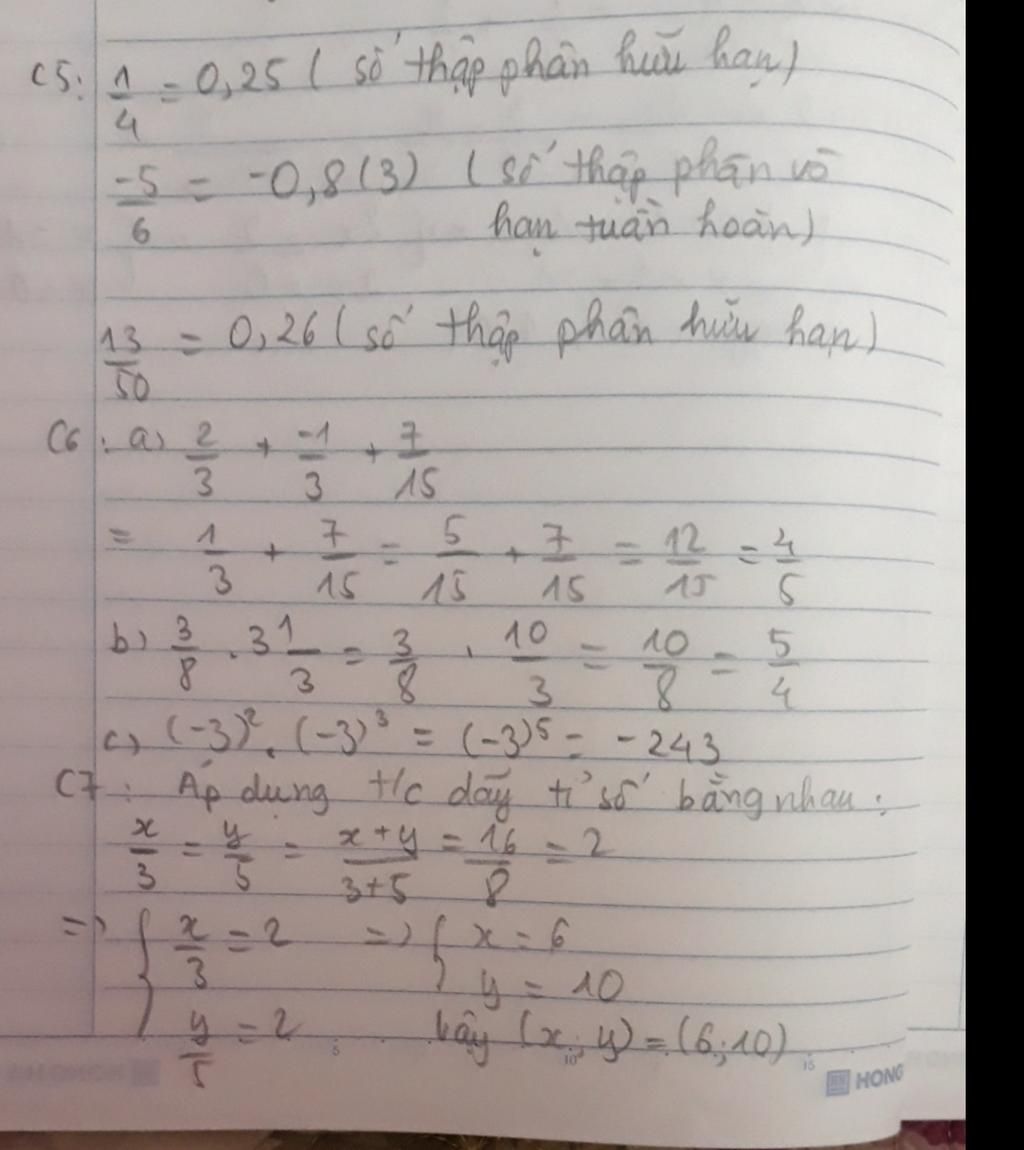 C5: 1/4 = 0,25 ( số thập phân hữu hạn)
-5/6 = -0,8(3) ( số thập phân vô
hạn tuần hoàn)
13/50 = 0,26 ( số thập phân hữu hạn)
C6: a) 2/3 + -1/3 + 7/15
= 1/3 + 7/15 = 5/15 + 7/15 = 12/15 = 4/5
b) 3/8 . 3 1/3 = 3/8 . 10/3 = 10/8 = 5/4
c) (-3)². (-3)³ = (-3)⁵ = -243
C7: Áp dụng t/c dãy tỉ số bằng nhau:
x/3 = y/5 = x+y/3+5 = 16/8 = 2
=> { x/3 = 2 => { x = 6
y = 10
y/5 = 2 Vậy (x; y) = (6;10)
5 10 15
HONG